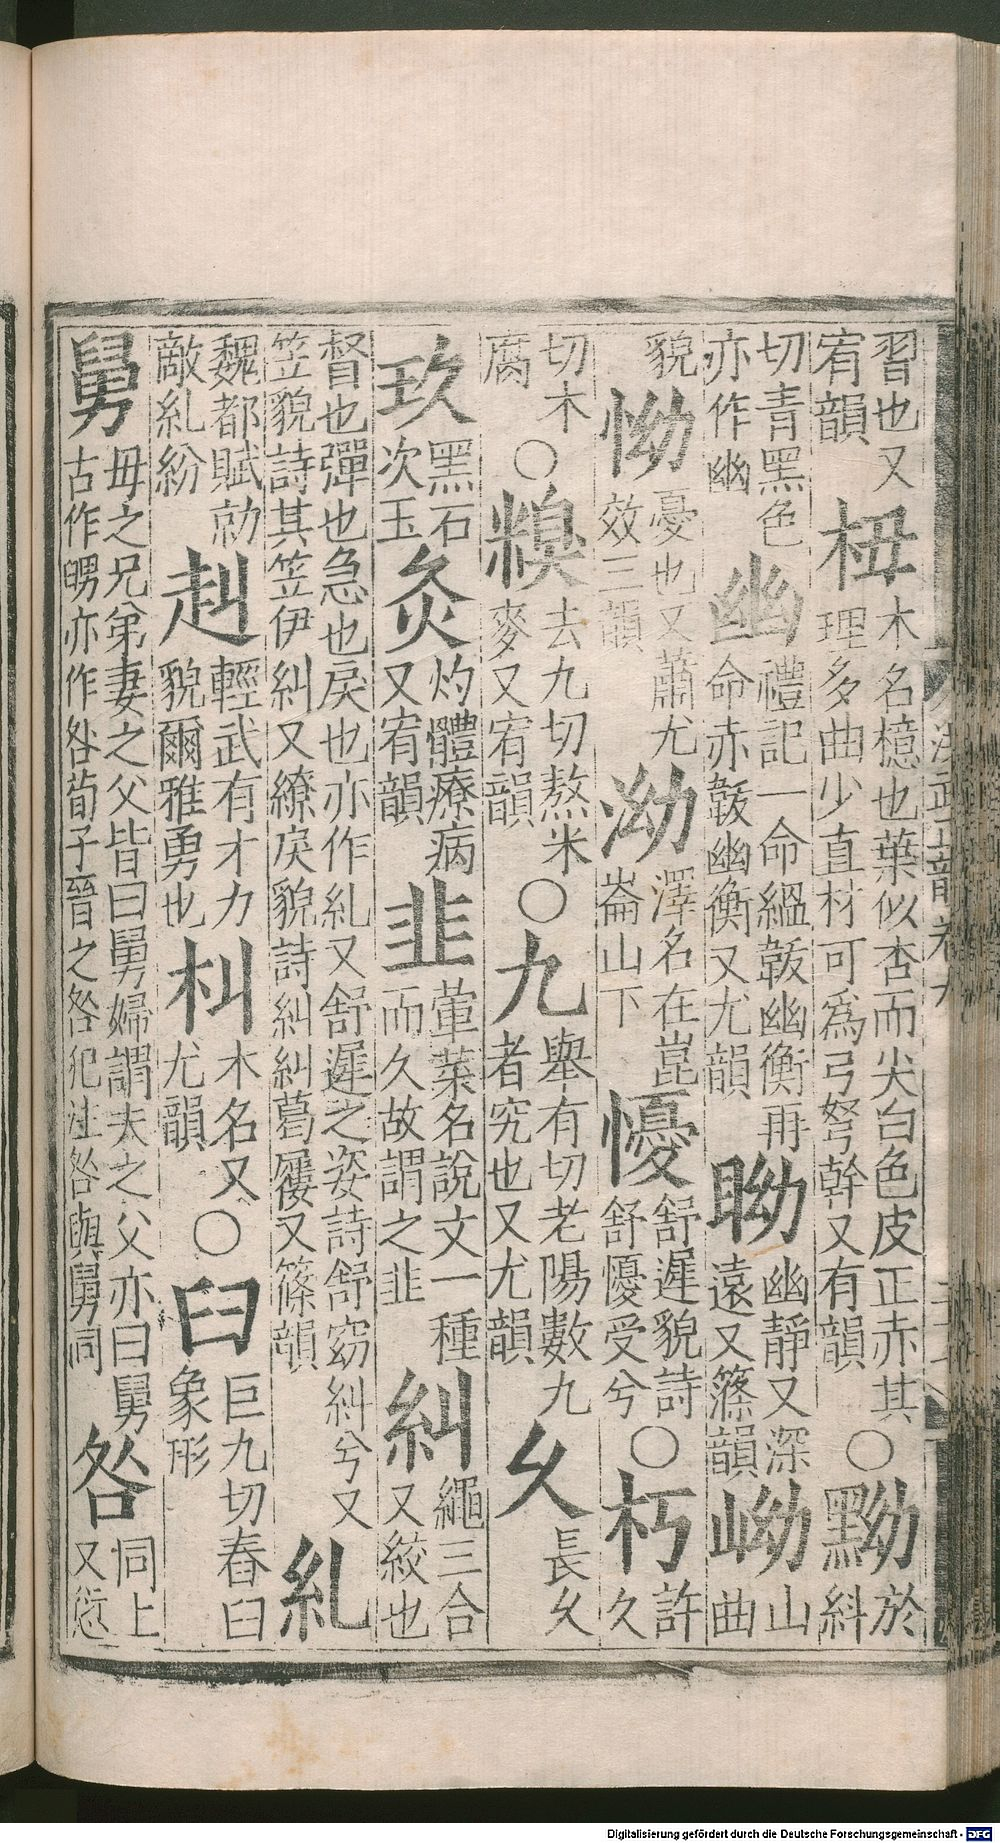 洪武正韻卷九
習也又宥韻 杻 木名檍也葉似杏而尖白色皮正赤其理多曲少直材可爲弓弩幹又有韻 ○ 黝 於糾
切青黑色亦作幽 幽 禮記一命縕韍幽衡再命赤韍幽衡又尤韻 眑 幽靜又深遠又篠韻 岰 山曲
貌 怮 憂也又蕭尤效三韻 泑 澤名在崑崙山下 懮 舒遲貌詩舒懮受兮 ○ 朽 許久
切木腐 ○ 糗 去九切熬米麥又宥韻 ○ 九 舉有切老陽數九者究也又尤韻 久 長久
玖 黑石次玉 灸 灼體療病又宥韻 韭 葷菜名說文一種而久故謂之韭 糾 繩三合又絞也
督也彈也急也戾也亦作糺又舒遲之姿詩舒窈糾兮又笠貌詩其笠伊糾又繚戾貌詩糾糾葛屨又篠韻 糺
魏都賦勍敵糺紛 赳 輕武有才力貌爾雅勇也 朻 木名又尤韻 ○ 臼 巨九切舂臼象形
舅 母之兄弟妻之父皆曰舅婦謂夫之父亦曰舅古作亦作咎荀子晉之咎犯注咎與舅同 咎 同上又愆
Digitalisierung gefördert durch die Deutsche Forschungsgemeinschaft - DFG